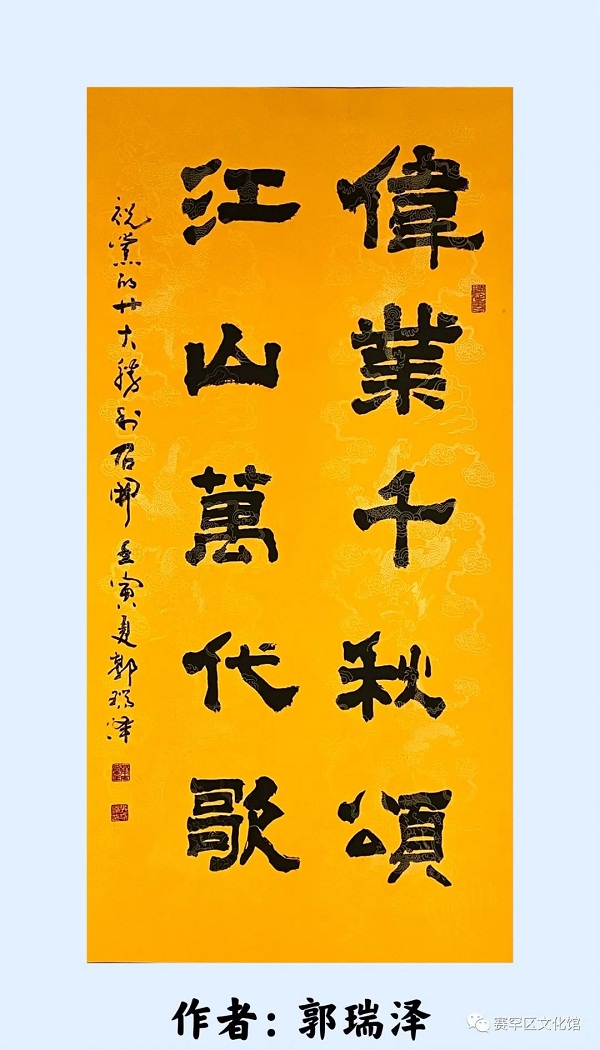 偉業千秋頌
江山萬代歌
祝党的廿大勝利召開壬寅夏郭瑞澤
作者：郭瑞泽
赛罕区文化馆